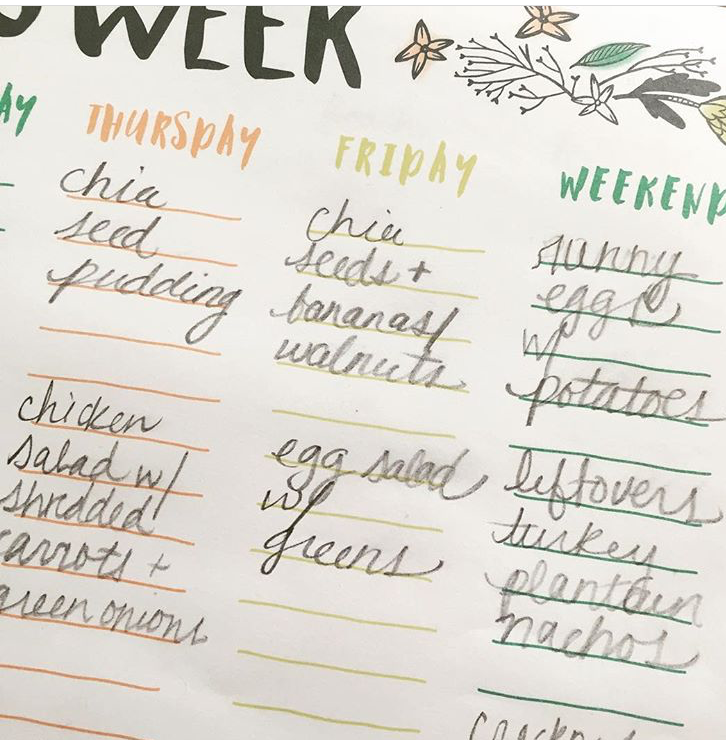 WEEK
AY
THURSDAY
chia
seed
pudding
chicken
salad w/
shredded
carrots +
green onions
FRIDAY
chia
seeds +
bananas/
walnuts
egg salad
w/
greens
WEEKEND
sunny
eggs
w/
potatoes
leftovers
turkey
plantain
nachos